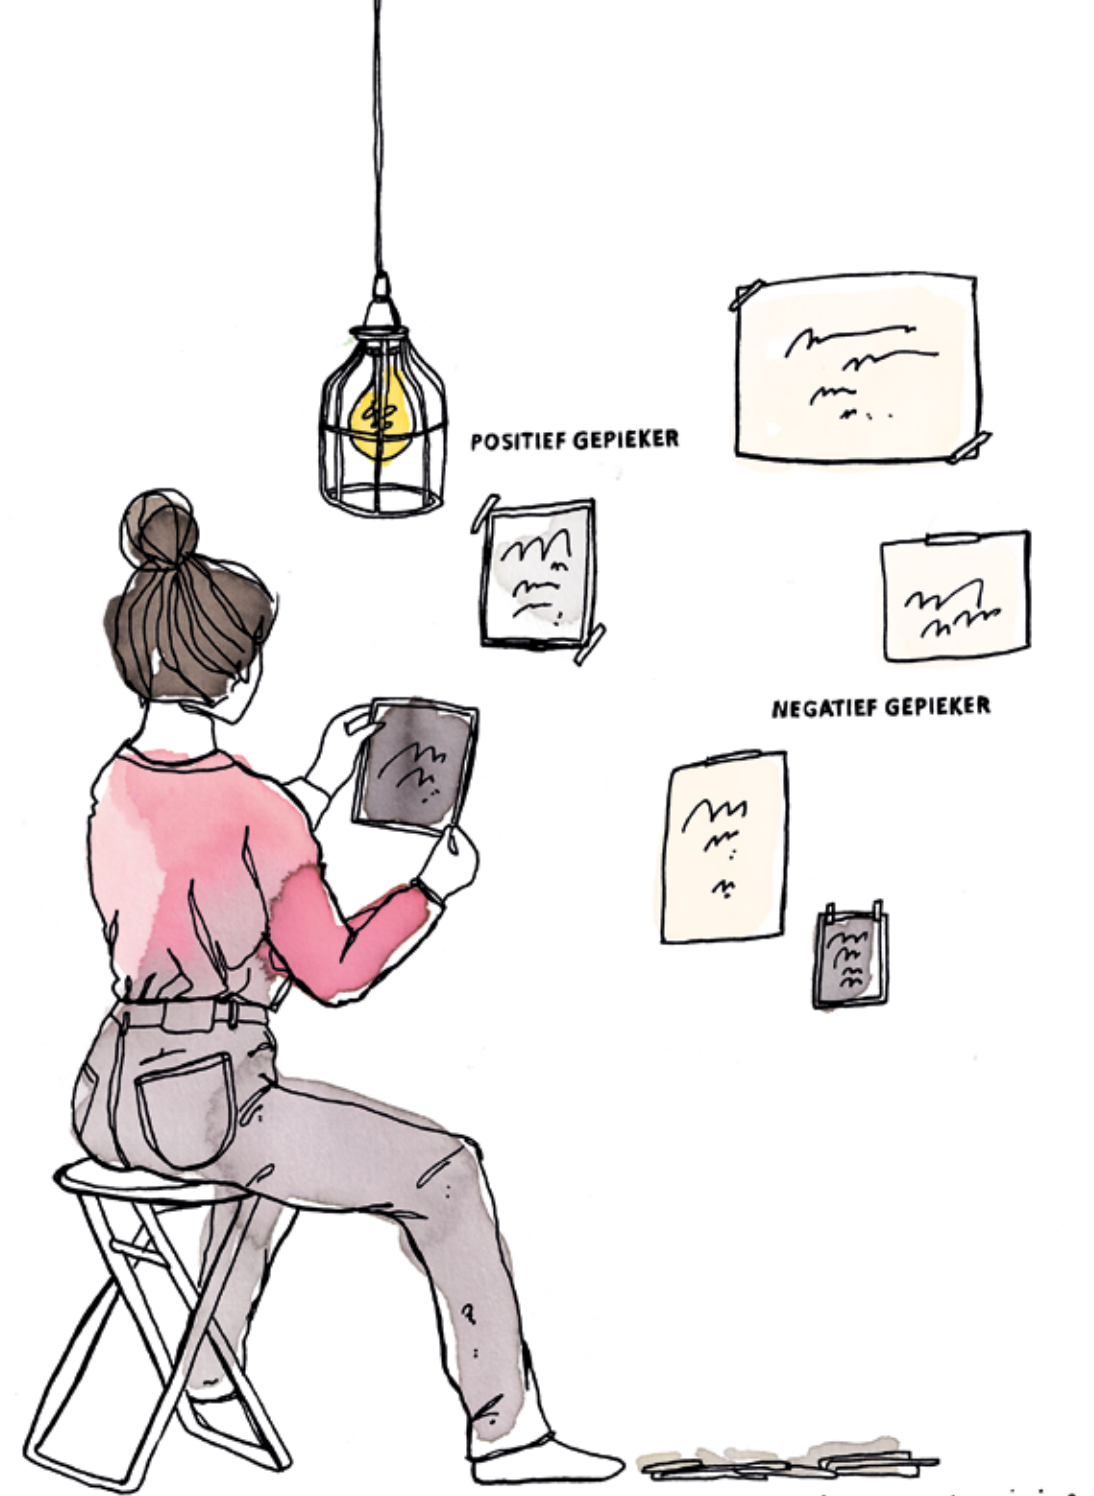 POSITIEF GEPIEKER
NEGATIEF GEPIEKER